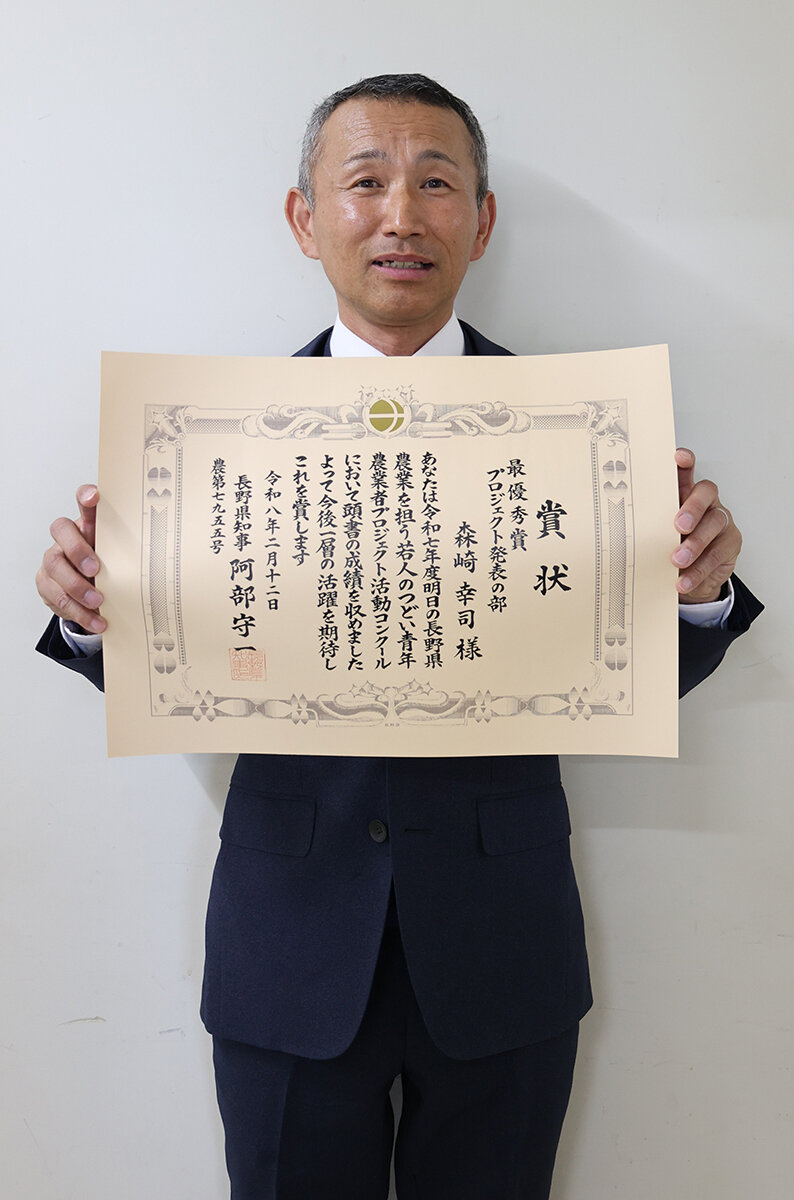 賞状
最優秀賞
プロジェクト発表の部
森崎幸司様
あなたは令和七年度明日の長野県
農業を担う若人のつどい青年
農業者プロジェクト活動コンクール
において頭書の成績を収めました
よって今後一層の活躍を期待し
これを賞します
令和八年二月十二日
長野県知事 阿部守一
農第七九五五号